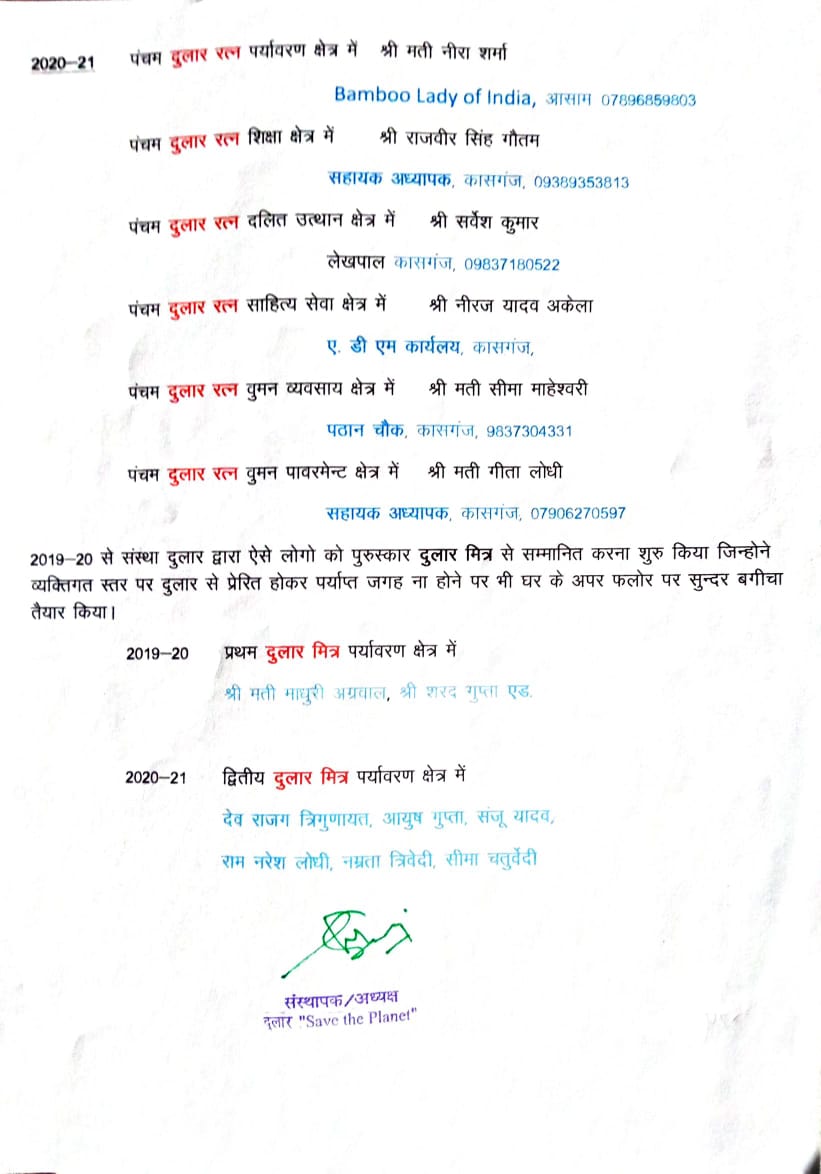 2020–21 पंचम दुलार रत्न पर्यावरण क्षेत्र में श्री मती नीरा शर्मा
Bamboo Lady of India, आसाम 07896859803
पंचम दुलार रत्न शिक्षा क्षेत्र में श्री राजवीर सिंह गौतम
सहायक अध्यापक, कासगंज, 09389353813
पंचम दुलार रत्न दलित उत्थान क्षेत्र में श्री सर्वेश कुमार
लेखपाल कासगंज, 09837180522
पंचम दुलार रत्न साहित्य सेवा क्षेत्र में श्री नीरज यादव अकेला
ए. डी एम कार्यलय, कासगंज,
पंचम दुलार रत्न वुमन व्यवसाय क्षेत्र में श्री मती सीमा माहेश्वरी
पठान चौक, कासगंज, 9837304331
पंचम दुलार रत्न वुमन पावरमेन्ट क्षेत्र में श्री मती गीता लोधी
सहायक अध्यापक, कासगंज, 07906270597
2019–20 से संस्था दुलार द्वारा ऐसे लोगो को पुरुस्कार दुलार मित्र से सम्मानित करना शुरु किया जिन्होने
व्यक्तिगत स्तर पर दुलार से प्रेरित होकर पर्याप्त जगह ना होने पर भी घर के अपर फलोर पर सुन्दर बगीचा
तैयार किया।
2019–20 प्रथम दुलार मित्र पर्यावरण क्षेत्र में
श्री मती माधुरी अग्रवाल, श्री शरद गुप्ता एड.
2020–21 द्वितीय दुलार मित्र पर्यावरण क्षेत्र में
देव राजग त्रिगुणायत, आयुष गुप्ता, संजू यादव,
राम नरेश लोधी, नम्रता त्रिवेदी, सीमा चतुर्वेदी
संस्थापक/अध्यक्ष
दुलार "Save the Planet"